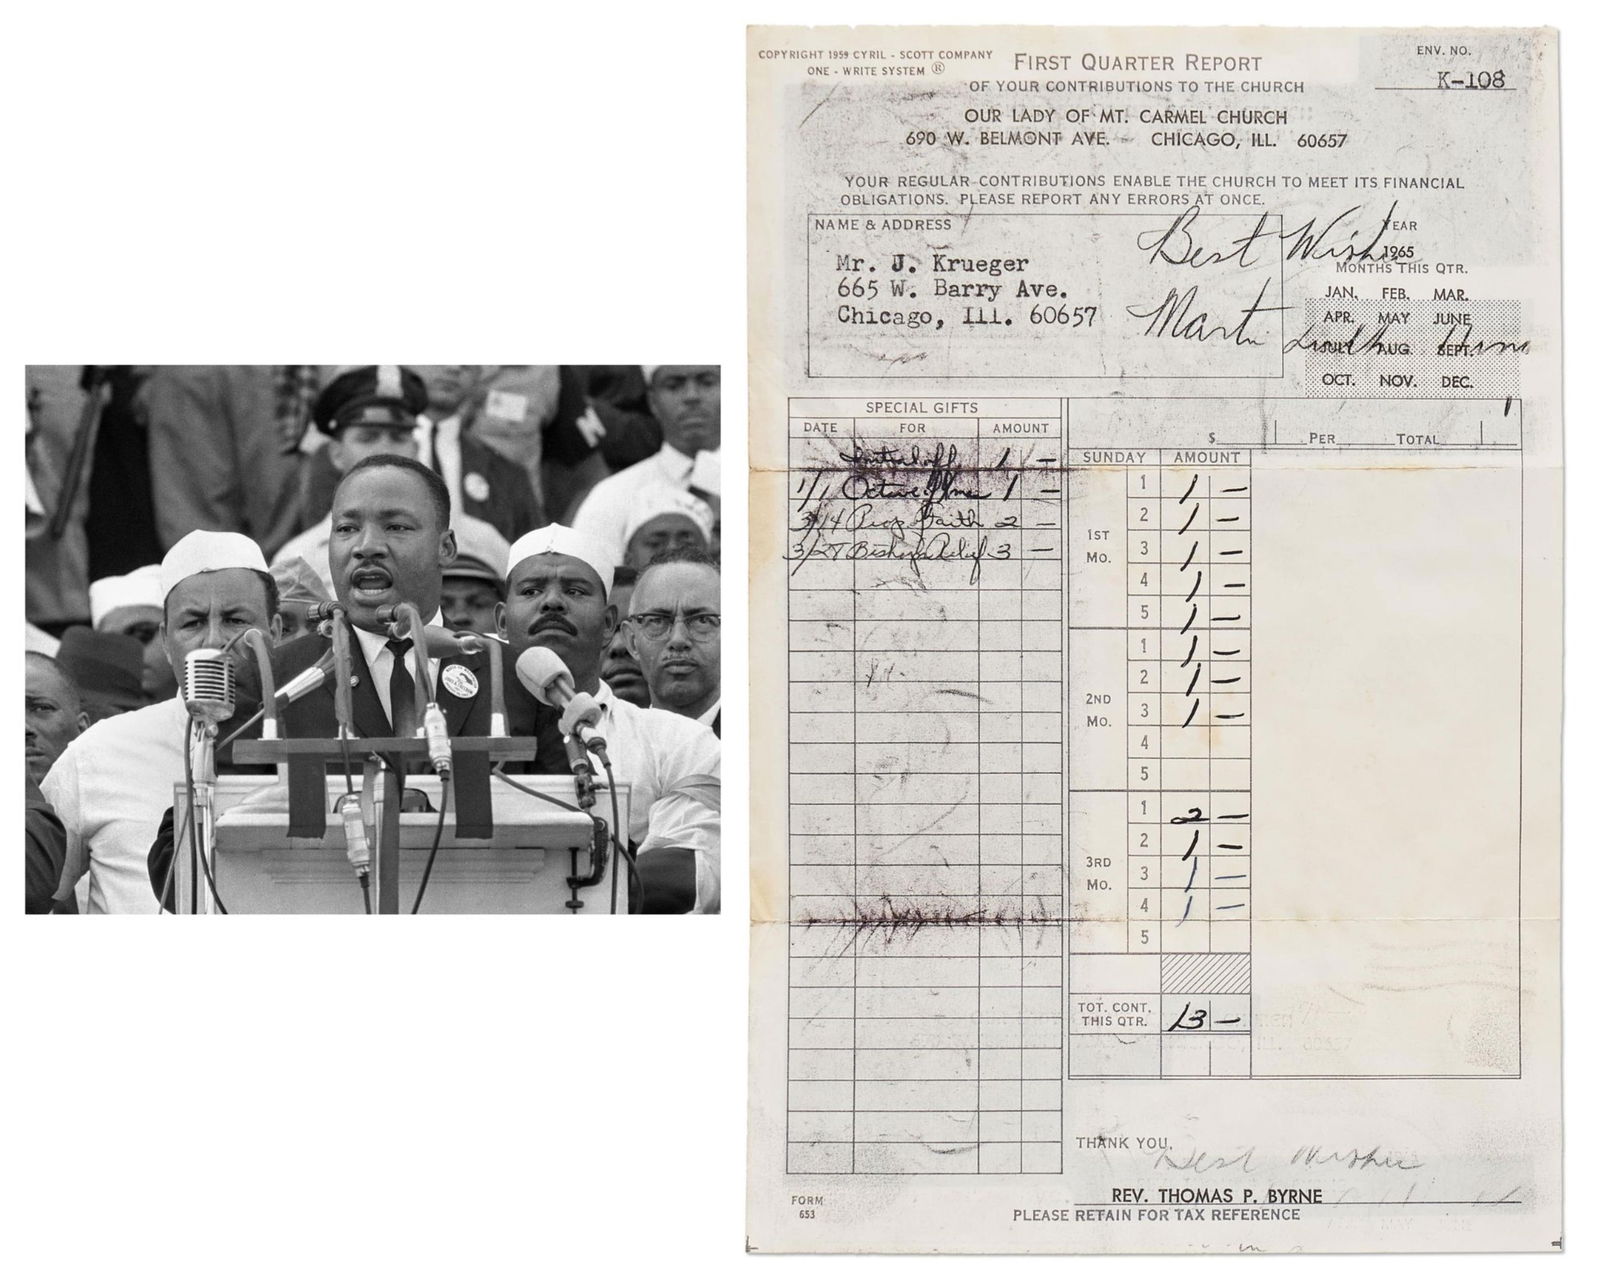 COPYRIGHT 1959 CYRIL - SCOTT COMPANY
ONE - WRITE SYSTEM ®
FIRST QUARTER REPORT
OF YOUR CONTRIBUTIONS TO THE CHURCH
ENV. NO.
K-108
OUR LADY OF MT. CARMEL CHURCH
690 W. BELMONT AVE. CHICAGO, ILL. 60657
YOUR REGULAR CONTRIBUTIONS ENABLE THE CHURCH TO MEET ITS FINANCIAL
OBLIGATIONS. PLEASE REPORT ANY ERRORS AT ONCE.
NAME & ADDRESS
Mr. J. Krueger
665 W. Barry Ave.
Chicago, Ill. 60657
Best Wishes
Martin Luther King
YEAR
1965
MONTHS THIS QTR.
JAN. FEB. MAR.
APR. MAY JUNE
JULY AUG. SEPT.
OCT. NOV. DEC.
SPECIAL GIFTS
DATE FOR AMOUNT
Initial off 1 —
1/1 Octave 1 —
3/14 Prop Faith 2 —
3/27 Bishop Relief 3 —
$ PER TOTAL
SUNDAY AMOUNT
1ST MO.
1 1 —
2 1 —
3 1 —
4 1 —
5 1 —
2ND MO.
1 1 —
2 1 —
3 1 —
4
5
3RD MO.
1 2 —
2 1 —
3 1 —
4 1 —
5
TOT. CONT.
THIS QTR. 13 —
THANK YOU,
Best Wishes
REV. THOMAS P. BYRNE
PLEASE RETAIN FOR TAX REFERENCE
FORM
653